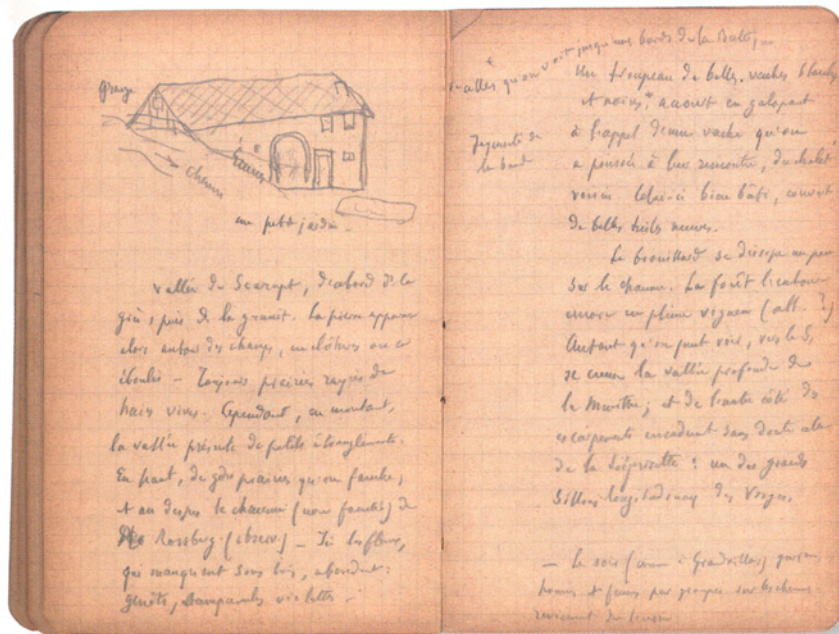 Grange
chemin
Écuries
un petit jardin.
Vallée du Scarupt, d'abord ds le
grès, puis ds le granit. La pierre apparaît
alors autour des champs, en clôtures ou en
éboulis — Toujours prairies rayées de
haies vives. Cependant, en montant,
la vallée présente de petits étranglements.
En haut, de gdes prairies qu'on fauche,
et au dessus le chaume (non fauché) de
Rossberg. (observ.) — Ici les fleurs,
qui manquent sous bois, abondent :
genêts, campanules violettes —
qu'on voit jusqu'aux bords de la Baltique
Un troupeau de belles vaches blanches
et noires, accourt en galopant
à l'appel d'une vache qu'on
a poussée à leur rencontre, du chalet
voisin. Celui-ci bien bâti, couvert
de belles tuiles neuves.
Fragments de
le bord
Le brouillard se dissipe un peu
sur le chaume. La forêt l'entoure
encore en pleine vigueur (alt. ?)
Autant qu'on peut voir, vers le S,
se creuse la vallée profonde de
la Meurthe; et de l'autre côté des
escarpements encadrent sans doute celle
de la : un des grands
sillons longitudinaux des Vosges.
— Le soir (comme à Grandvillers) garçons,
hommes et femmes par groupes sur les chemins
reviennent du travail